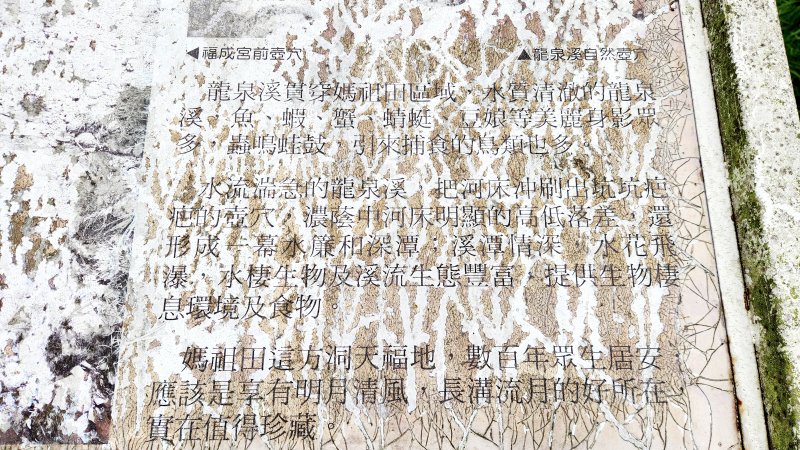 ◀福成宮前壺穴
▲龍泉溪自然壺穴
龍泉溪貫穿媽祖田區域，水質清澈的龍泉
溪，魚、蝦、蟹、蜻蜓、豆娘等美麗身影眾
多，蟲鳴蛙鼓，引來捕食的鳥類也多。
水流湍急的龍泉溪，把河床沖刷出坑坑疤
疤的壺穴，濃蔭中河床明顯的高低落差，還
形成一幕水簾和深潭；溪潭情深，水花飛
瀑，水棲生物及溪流生態豐富，提供生物棲
息環境及食物。
媽祖田這方洞天福地，數百年眾生居安，
應該是享有明月清風，長溝流月的好所在，
實在值得珍藏。